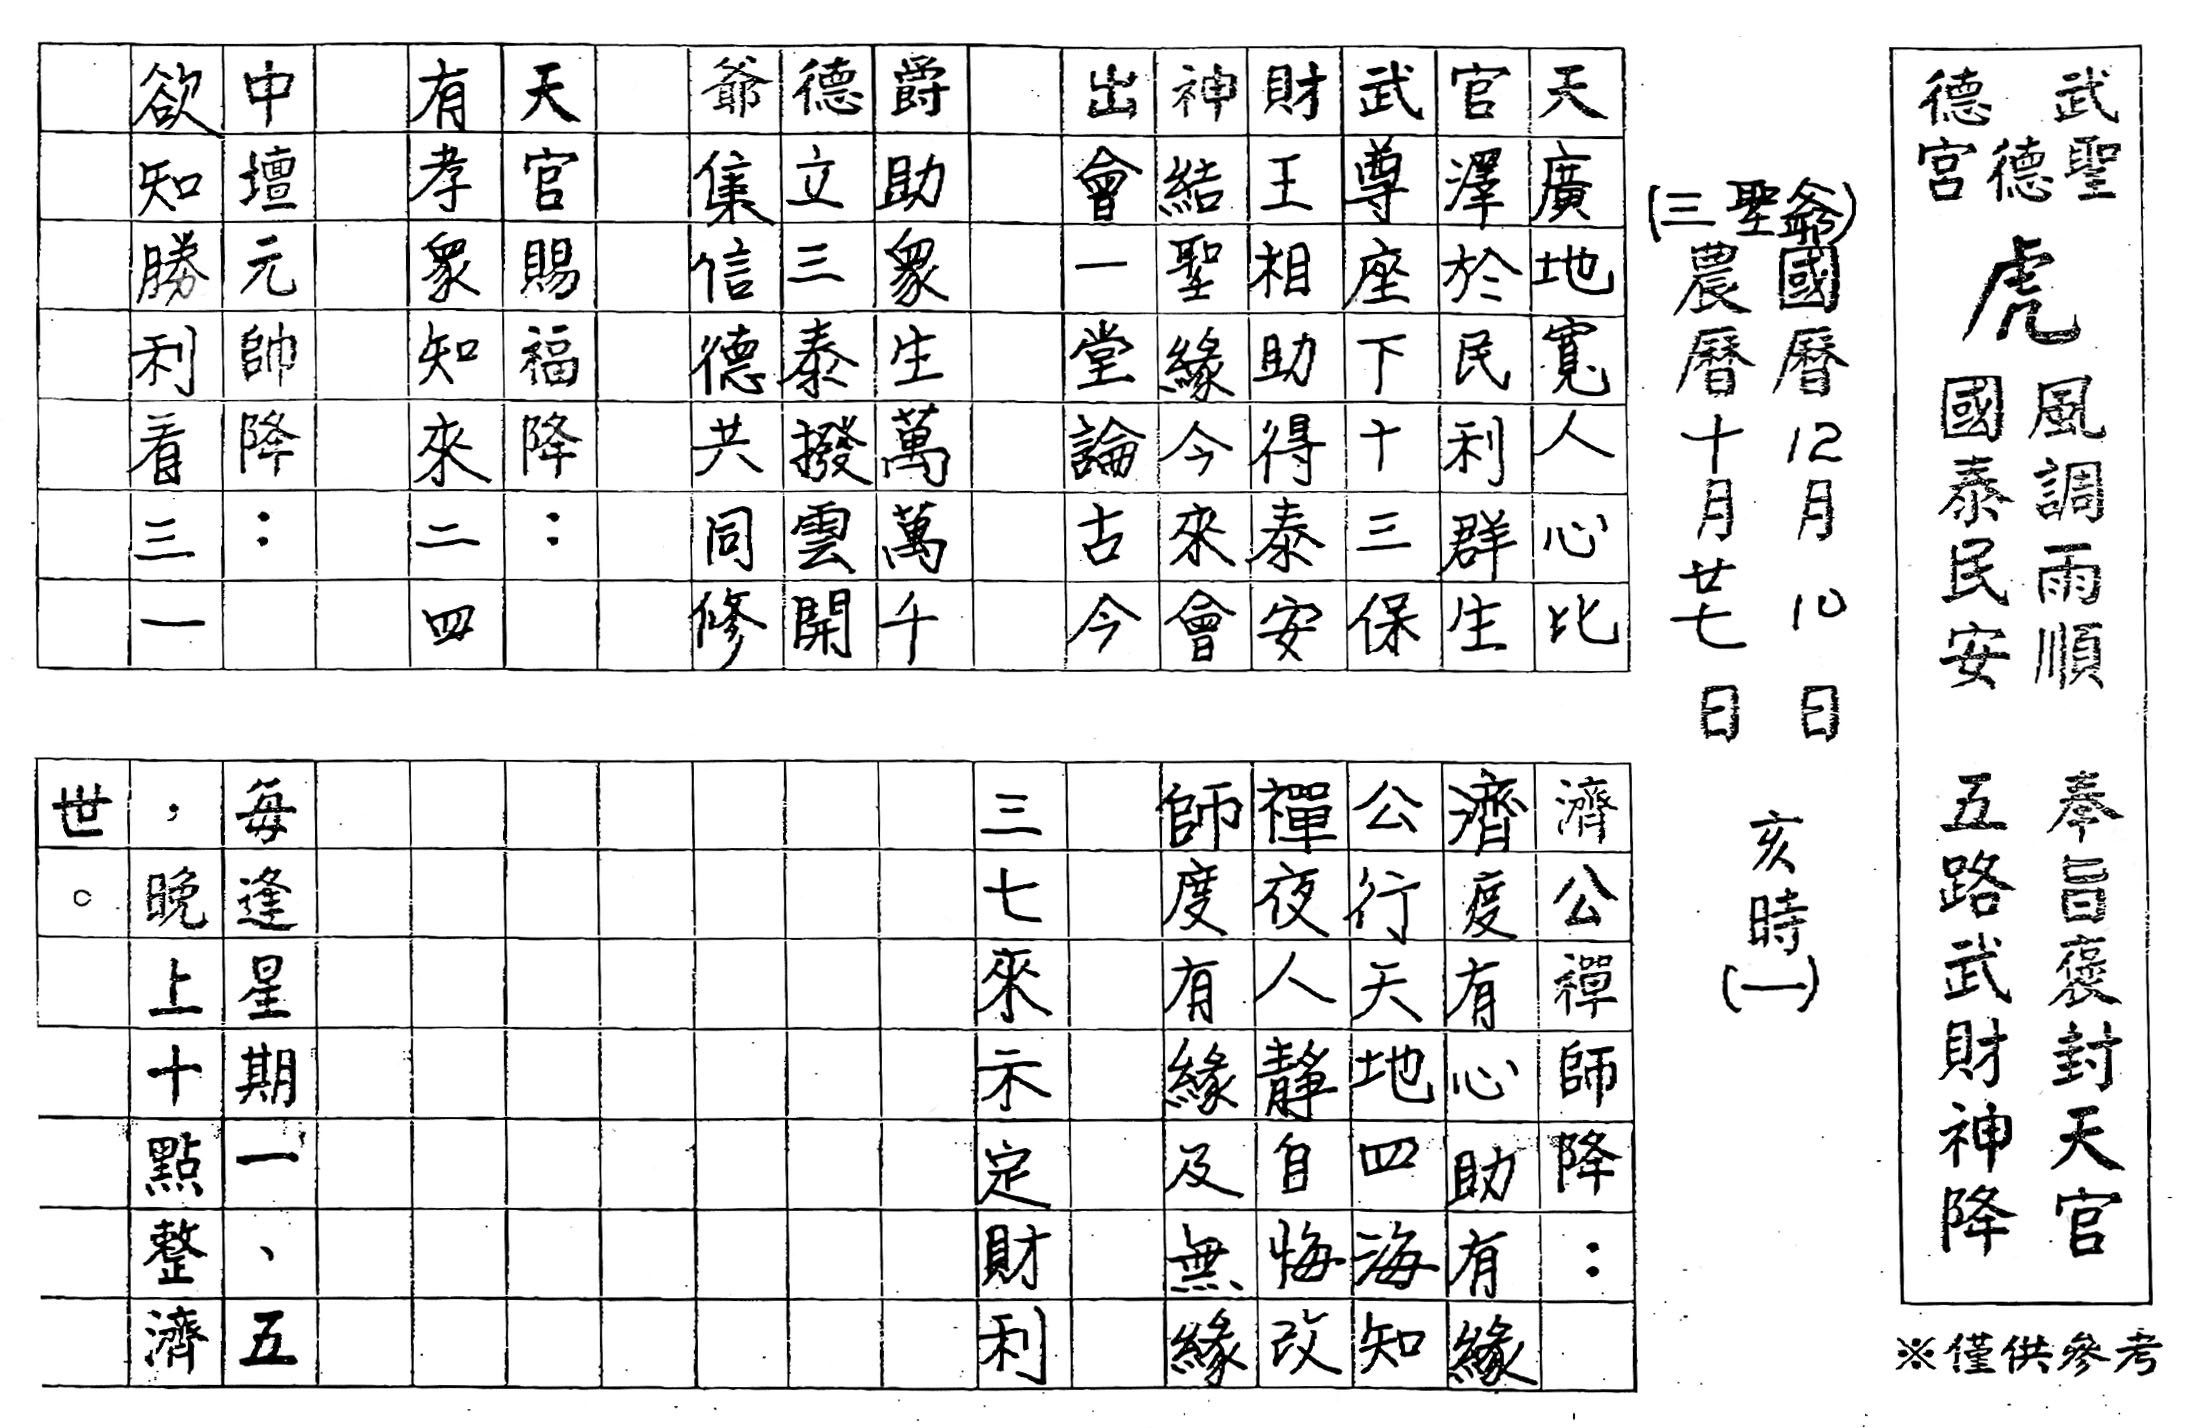 武聖德德宮
虎
風調雨順
國泰民安
奉旨褒封天官
五路武財神降
※僅供參考
(三聖爺)
國曆12月10日
農曆十月廿七日
亥時(一)
天廣地寬人心比
官澤於民利群生
武尊座下十三保
財王相助得泰安
神結聖緣今來會
出會一堂論古今
爵助眾生萬萬千
德文三泰撥雲開
爺集信德共同修
天官賜福降：
有孝眾知來二四
中壇元帥降：
欲知勝利看三一
濟公禪師降：
濟度有心助有緣
公行天地四海知
禪夜人靜自悔改
師度有緣及無緣
三七來示定財利
每逢星期一、五
，晚上十點整濟
世。